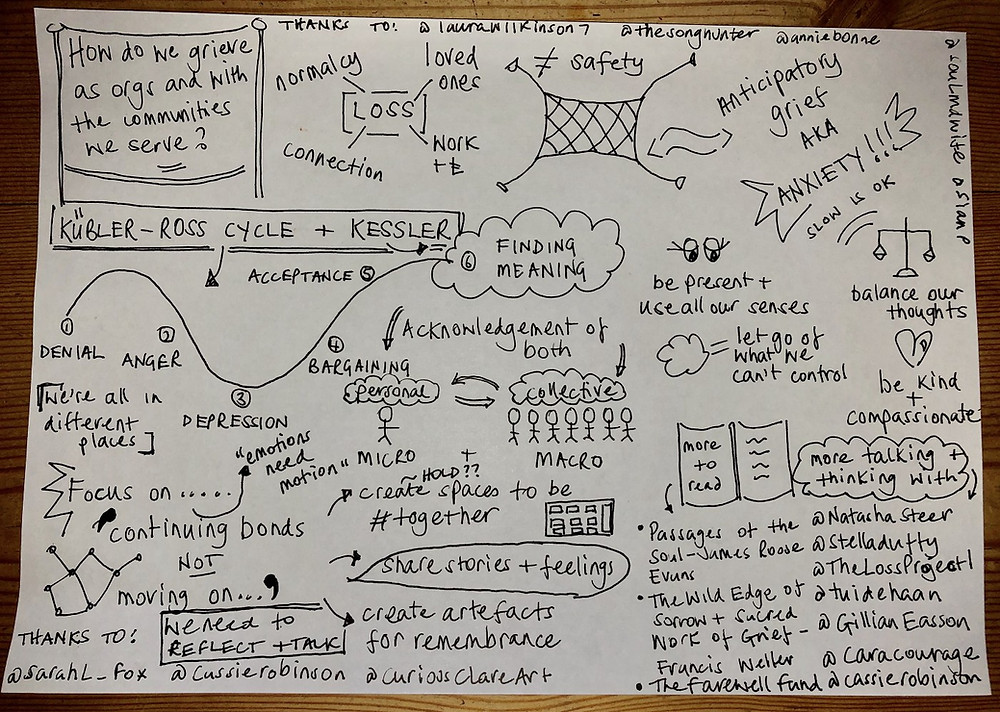 How do we grieve
as orgs and with
the communities
we serve?
THANKS TO: @laurawilkinson7 @thesonghunter @anniebonne
@soulmdwife @siamp
normalcy
loved
ones
[LOSS]
connection
work
≠ safety
Anticipatory
grief
AKA
ANXIETY!!!
SLOW IS OK
KÜBLER-ROSS CYCLE + KESSLER
① DENIAL
② ANGER
③ DEPRESSION
④ BARGAINING
ACCEPTANCE ⑤
⑥ FINDING
MEANING
[We're all in
different
places]
Acknowledgement of
both
personal
collective
MICRO + MACRO
be present +
use all our senses
balance our
thoughts
= let go of
what we
can't control
be kind
+
compassionate
Focus on.....
"emotions
need
motion"
continuing bonds
NOT
moving on...,
We need to
REFLECT + TALK
~ HOLD??
create spaces to be
#together
share stories + feelings
create artefacts
for remembrance
more
to
read
more talking +
thinking with
• Passages of the
Soul - James Roose
Evans
• The Wild Edge of
Sorrow + Sacred
Work of Grief -
Francis Weller
• The farewell fund
@Natasha steer
@stelladuffy
@TheLossProject1
@tuidehaan
@Gillian Easson
@Caracourage
@cassierobinson
THANKS TO:
@sarahL_fox @Cassierobinson @CuriousClareArt